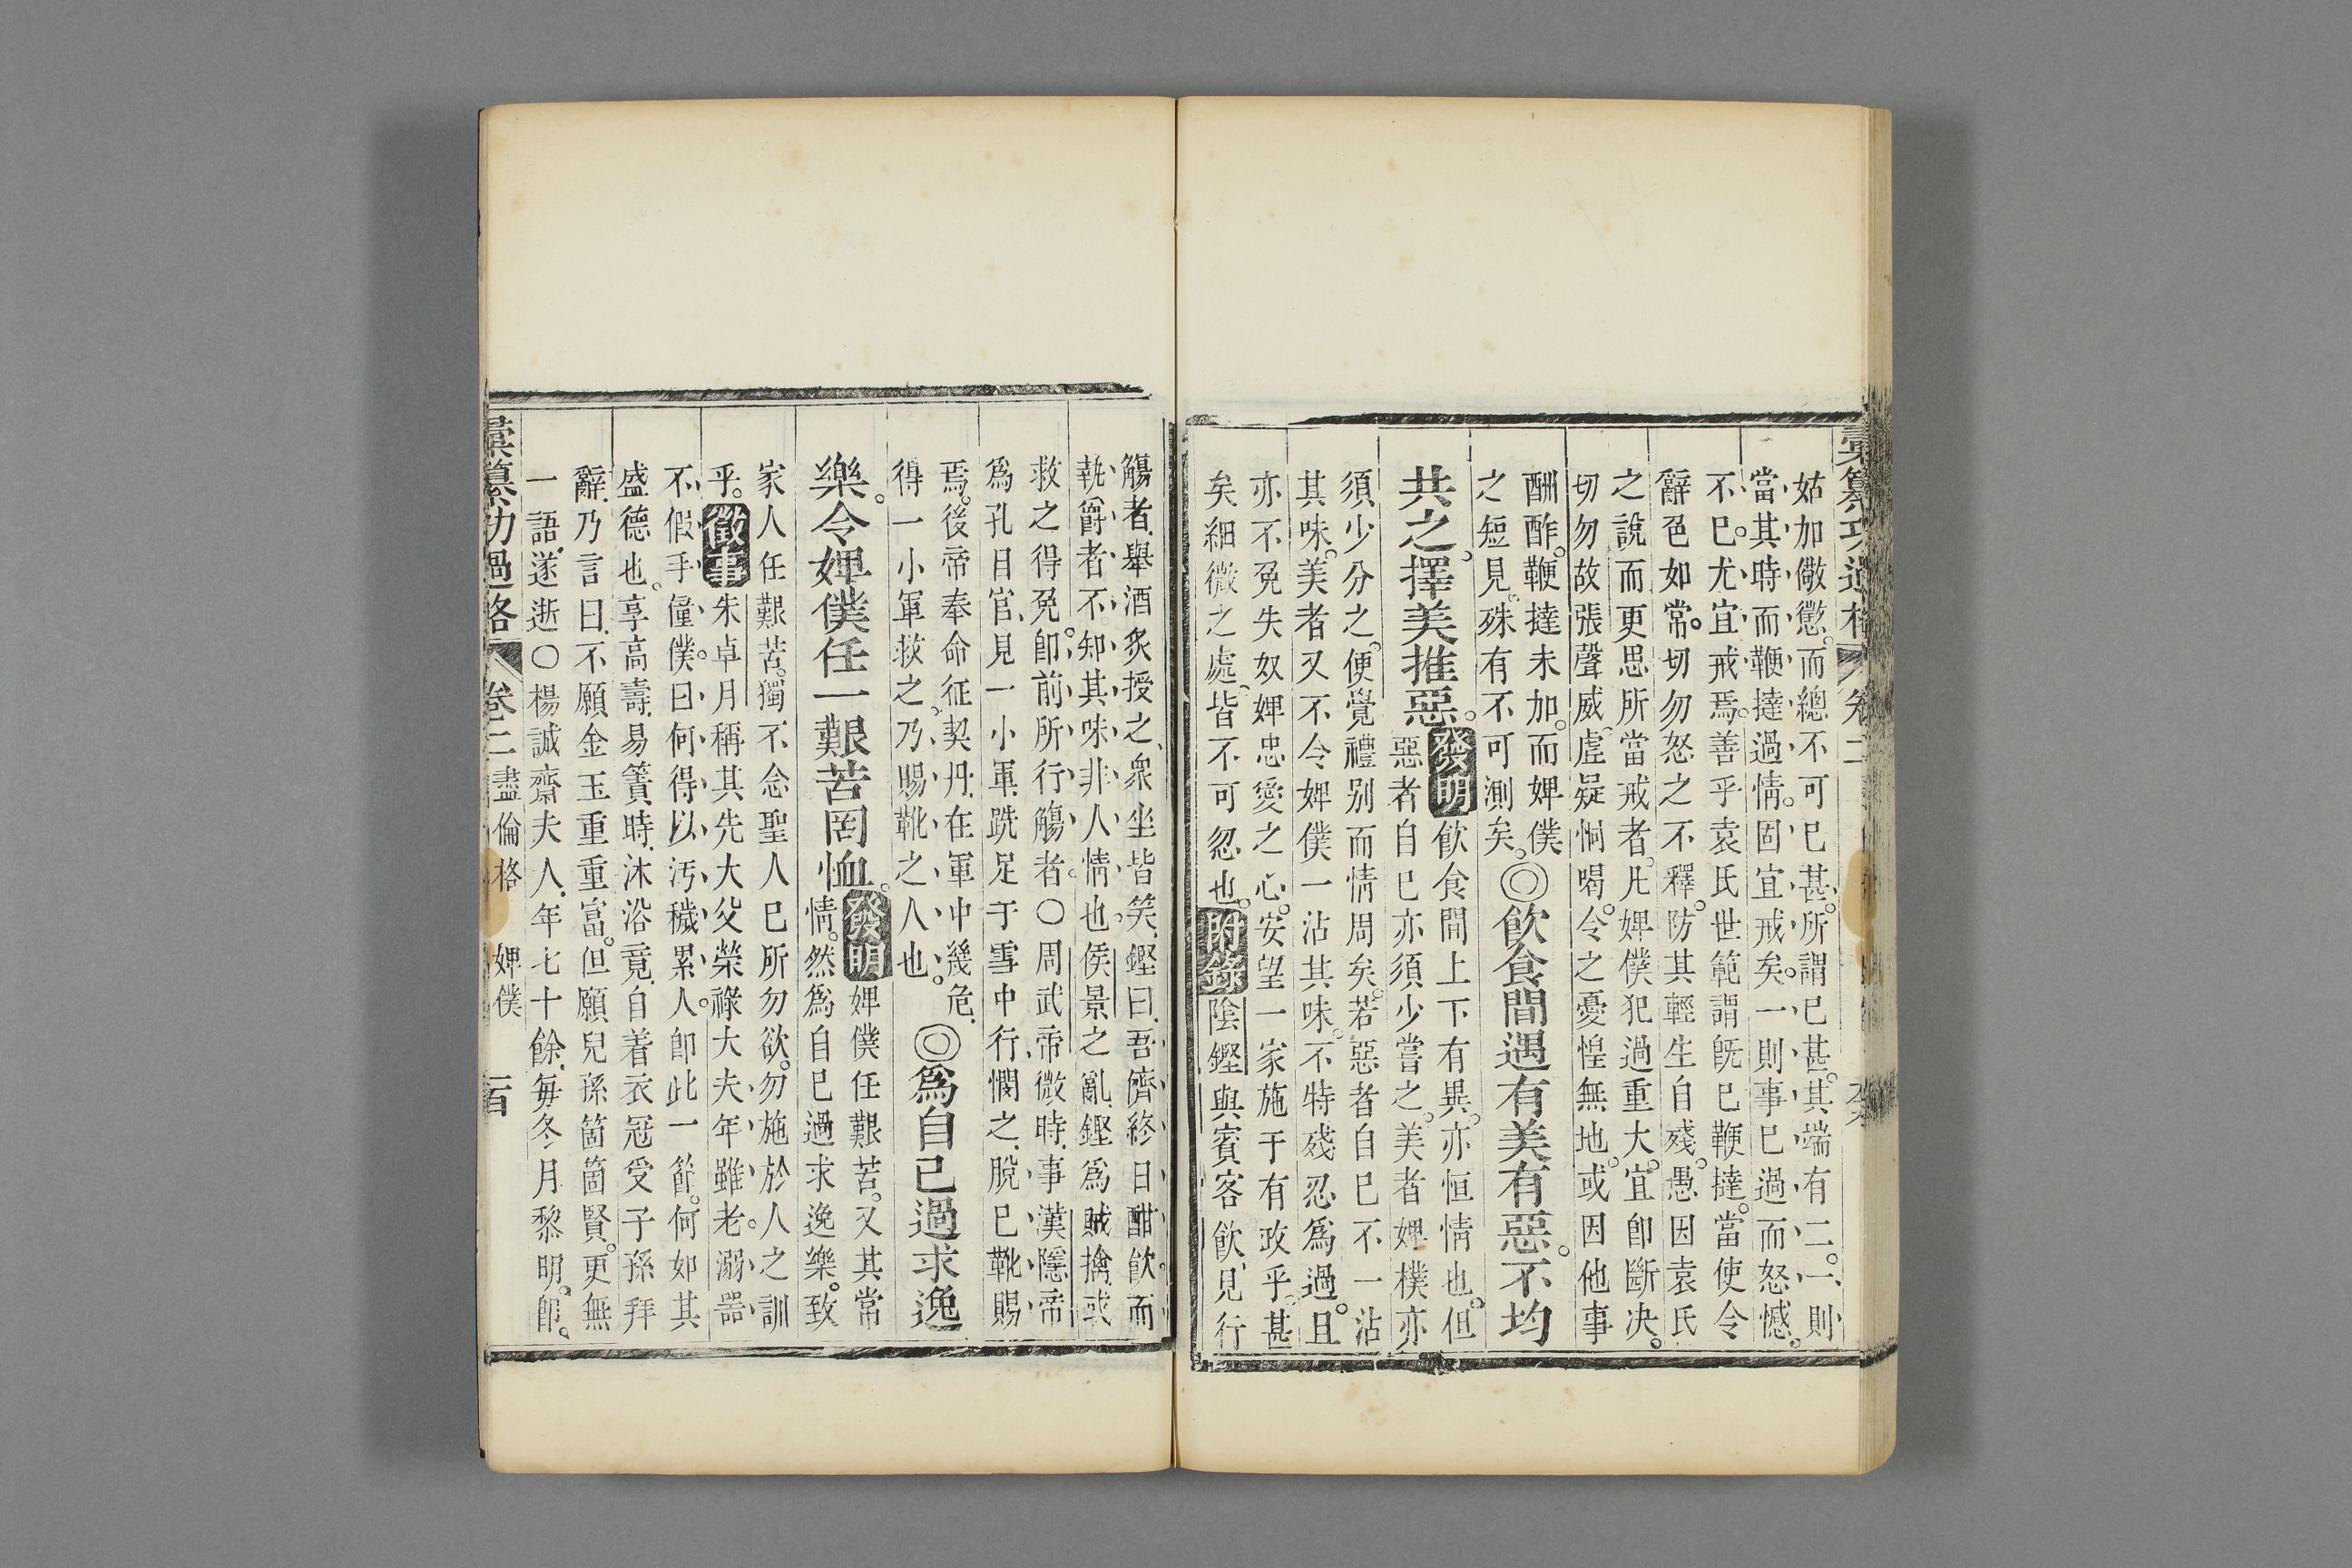 彙纂功過格 卷二
姑加儆懲。而總不可已甚。所謂已甚。其端有二。一則
當其時而鞭撻過情。固宜戒矣。一則事已過而怒憾。
不已。尤宜戒焉。善乎袁氏世範謂旣已鞭撻。當使令
辭色如常。切勿怒之不釋。防其輕生自殘。愚因袁氏
之說而更思所當戒者。凡婢僕犯過重大。宜卽斷决。
切勿故張聲威。虛疑恫喝。令之憂惶無地。或因他事
酬酢。鞭撻未加。而婢僕
之短見。殊有不可測矣。◎飲食間遇有美有惡。不均
共之。擇美推惡。發明飲食間上下有異。亦恒情也。但
惡者自已亦須少嘗之。美者婢樸亦
須少分之。便覺禮别而情周矣。若惡者自已不一沾
其味。美者又不令婢僕一沾其味。不特殘忍爲過。且
亦不免失奴婢忠愛之心。安望一家施于有政乎。甚
矣細微之處。皆不可忽也。附錄陰鏗與賓客飲、見行
觴者、舉酒炙授之、衆坐皆笑、鏗曰、吾儕終日酣飲。而
執爵者不知其味、非人情也。侯景之亂、鏗爲賊擒、或
救之得免。卽前所行觴者。○周武帝微時、事漢隱帝
爲孔目官、見一小軍、跣足于雪中行、憫之、脫已靴賜
焉。後帝奉命征契丹、在軍中幾危、
得一小軍救之。乃賜靴之人也。◎爲自已過求逸
樂。令婢僕任一艱苦罔恤。發明婢僕任艱苦。又其常
情。然爲自已過求逸樂。致
家人任艱苦。獨不念聖人已所勿欲。勿施於人之訓
乎。徵事朱卓月稱其先大父榮祿大夫年雖老。溺器
不假手僮僕。曰何得以汚穢累人。卽此一節。何如其
盛德也。享高壽、易簀時、沐浴竟、自着衣冠受子孫拜
辭、乃言曰、不願金玉重重富。但願兒孫箇箇賢。更無
一語、遂逝○楊誠齋夫人、年七十餘、每冬月黎明。卽。
彙纂功過格 卷二盡倫格 婢僕